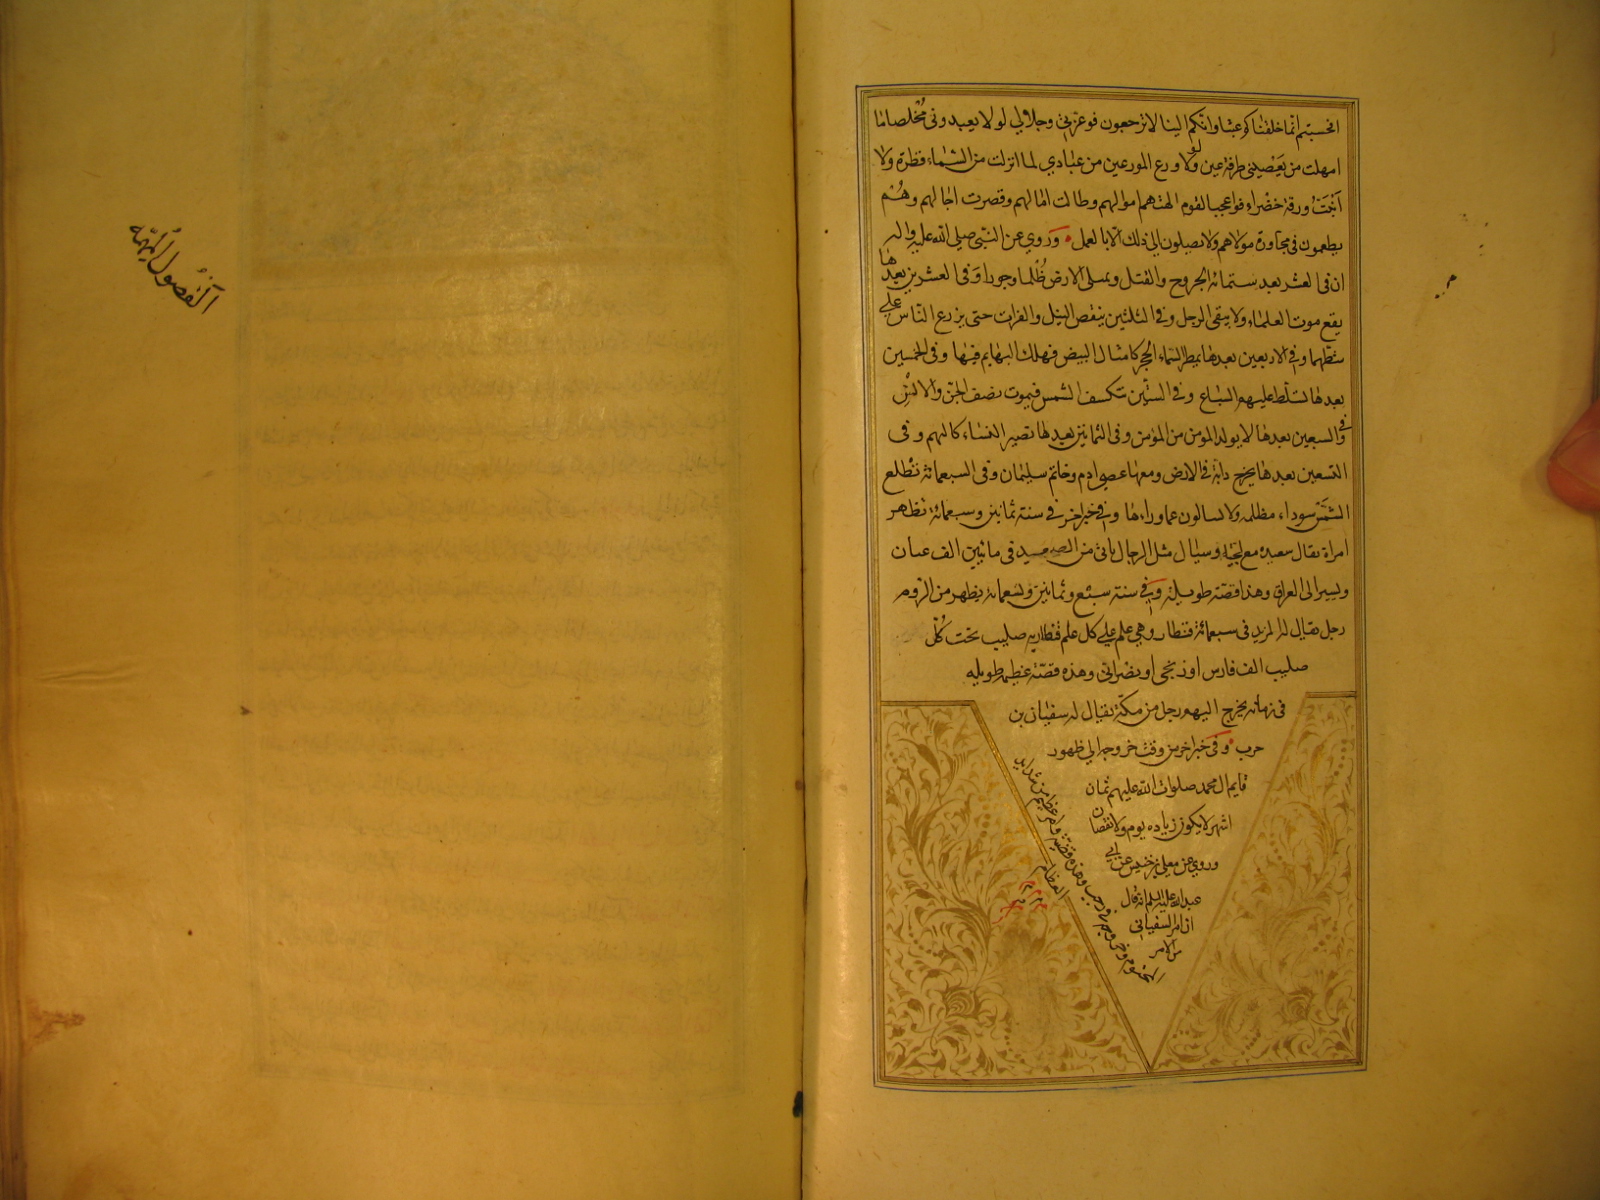 افحسبتم انّما خلقناكم عبثا وانّكم الينا لا ترجعون فوعزتي وجلالي لولا يعبدوني مخلصا ما
امهلت من يعصيني طرفة عين ولو لا ورع المورعين من عبادي لما انزلت من السّماء قطرة ولا
انبتت ورقة خضراء فواعجبا لقوم الهتهم اموالهم وطالت امالهم وقصرت اجالهم وهُم
يطمعون في مجاورة مولاهم ولا يصلون الى ذلك الا بالعمل وروي عن النّبي صلى الله عليه واله
ان في العشر بعد ستمائة الجروح والقتل ويمتلى الارض ظُلما وجورا وفي العشرين بعدها
يقع موت العلماء ولا يبقى الرجل وفي الثلثين ينقص النيل والفرات حتى يزرع النّاس على
شطّهما وفي الاربعين بعدها يمطر السّماء الحجر كامثال البيض فيهلك البهايم فيها وفي الخمسين
بعدها تسلّط عليهم السّباع وفي السّتين تنكسف الشمس فيموت نصف الجنّ والانس
وفي السبعين بعدها لا يولد المؤمن من المؤمن وفي الثمانين بعدها تصير النساء كالبهم وفي
التسعين بعدها يخرج دابة في الارض ومعها عصى ادم وخاتم سليمان وفي السبعمائة تطلع
الشّمس سوداء مظلمه ولا تسالون عما وراءها وفي خبر اخر في سنة ثمانين وسبعمائة تظهر
امراة يقال سعيده مع لحية وسبال مثل الرجال ياتي من الصعيد في مائتين الف عنان
ويسير الى العراق وهذا قصّة طويلة وفي سنة سبع وثمانين وتسعمائة يظهر من الروم
رجل يقال له المزيد في سبعمائة قنطارر وهي علم على كل علم قنطاريه صليب تحت كُل
صليب الف فارس افرنجي او نصراني وهذه قصّة عظيمة طويله
في زمانه يخرج اليهم رجل من مكّة يقال له سفيان بن
حرب وفي خبر اخر من وقت خروجه الى ظهور
قايم ال محمد صلوات الله عليهم ثمان
اشهر لا يكون زياده يوم ولا نقصان
وروي عن معلى بن خنيس عن ابي
عبدالله عليه السلم انه قال
ان امر السّفياني
من الامر
المحتوم وخروجه في رجب وهذه قصّة
العظام
الفُصُول المُهمّه